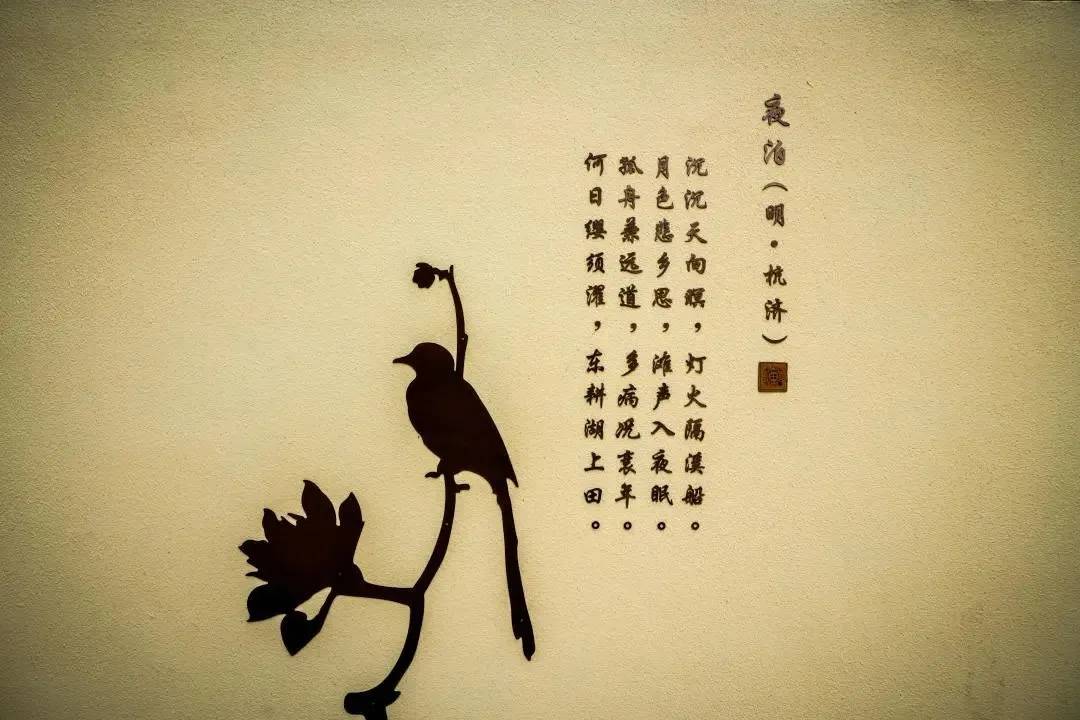 夜泊（明·杭济）
沉沉天向暝，灯火隔溪船。
月色悲乡思，滩声入夜眠。
孤舟兼远道，多病况衰年。
何日缨须濯，东耕湖上田。